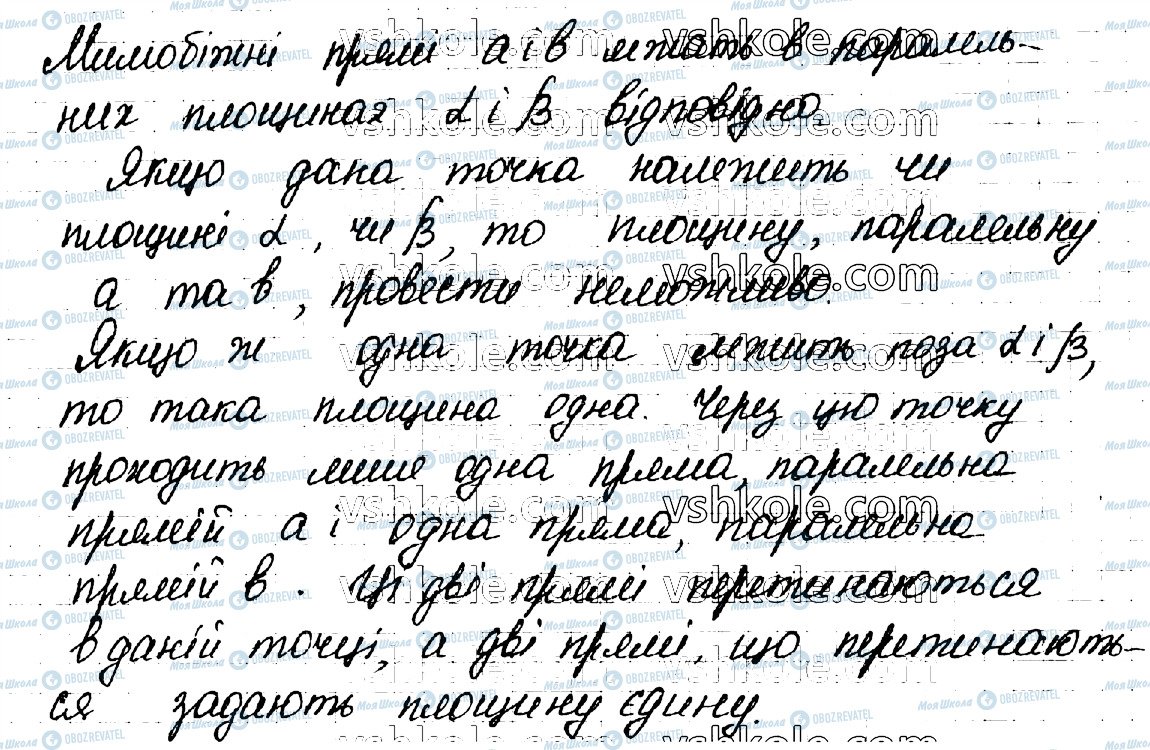 Мимобіжні прямі а і в лежать в паралель-
них площинах α і β відповідно.
Якщо дана точка належить чи
площині α, чи β, то площину, паралельну
а та в, провести неможливо.
Якщо ж одна точка лежить поза α і β,
то така площина одна. Через цю точку
проходить лише одна пряма, паралельна
прямій а і одна пряма, паралельна
прямій в. Ці дві прямі перетинаються
в даній точці, а дві прямі, що перетинають-
ся задають площину єдину.